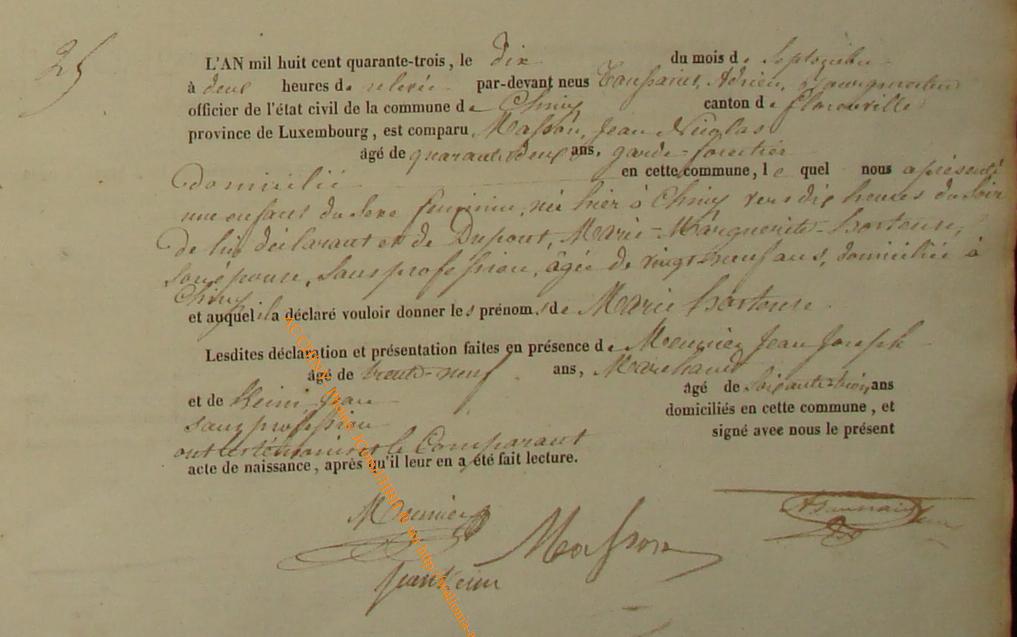 25
L'AN mil huit cent quarante-trois, le dix du mois de Septembre
à deux heures de relevée par-devant nous Toussaint, Adrien, Bourgmestre
officier de l'état civil de la commune de Chiny canton de florenville
province de Luxembourg, est comparu Masson, Jean Nicolas
âgé de quarante deux ans, garde-forestier
domicilié en cette commune, le quel nous a présenté
une enfant du sexe feminin, née hier à Chiny vers dix heures du soir
de lui déclarant et de Dupont, Marie-Marguerite-hortense,
son épouse, sans profession, âgée de vingt-neuf ans, domiciliée à
Chiny
et auquel il a déclaré vouloir donner les prénoms de Marie hortense
Lesdites déclaration et présentation faites en présence de Meunier Jean Joseph
âgé de trente-neuf ans, Marchand
et de Keim Jean âgé de soixante-trois ans
sans profession domiciliés en cette commune, et
ont les témoins et le Comparant signé avec nous le présent
acte de naissance, après qu'il leur en a été fait lecture.
Meunier
Masson
Jean Keim